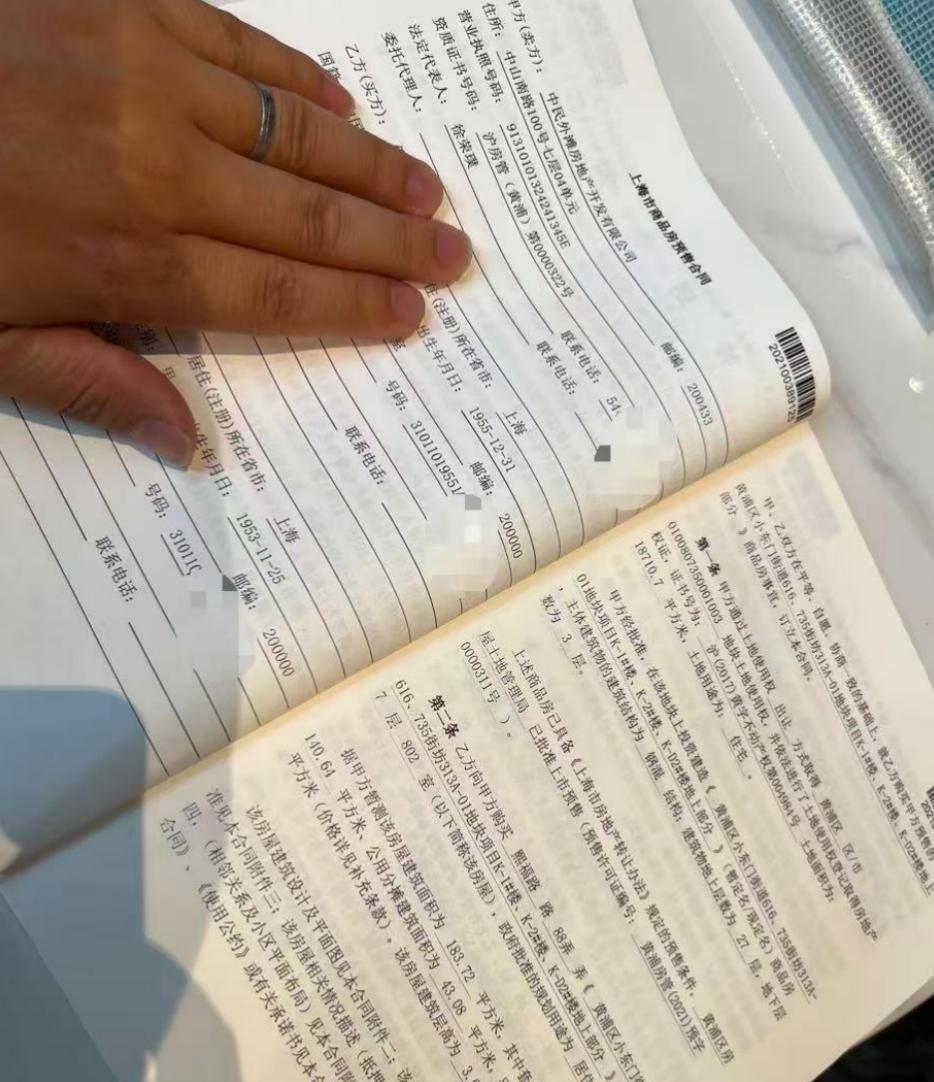 202100389125
上海市商品房预售合同
甲方(卖方): 中民外滩房地产开发有限公司
住所: 中山南路100号七层04单元 邮编: 200433
营业执照号码: 91310101324241345E
资质证书号码: 沪房管（黄浦）第0000322号
法定代表人: 徐荣璞 联系电话: 54
委托代理人: 联系电话:
乙方(买方):
国籍
住(注册)所在省市: 上海 邮编: 200000
出生年月日: 1955-12-31
号码: 31011019551
联系电话:
居住(注册)所在省市: 上海 邮编: 200000
年月日: 1953-11-25
号码: 31011
联系电话:
甲、乙双方在平等、自愿、协商一致的基础上，就乙方购买甲方预售的
黄浦区小东门街道616、735街坊313A-01地块项目K-1#楼、K-2#楼、K-02#楼地上
部分 》商品房事宜，订立本合同。
第一条 甲方通过土地使用权 出让 方式取得 黄浦区 区/市
01008073500010​03 地块土地使用权，并依法进行了土地使用权登记取得房地产
权证，证书号为: 沪(2017)黄字不动产权第004984号 土地面积为:
18710.7 平方米，土地用途为: 住宅 。
甲方经批准，在该地块上投资建造《 黄浦区小东门街道616、735街坊313A-
01地块项目K-1#楼、K-2#楼、K-02#楼地上部分 》(暂定名/现定名)商品房
，主体建筑物的建筑结构为 钢混 结构；建筑物地上层数为 27 层，地下层
数为 3 层。
上述商品房已具备《上海市房地产转让办法》规定的预售条件， 黄浦区房
屋土地管理局 已批准上市预售（预售许可证编号: 黄浦房管(2021)预字
0000311号 ）。
第二条 乙方向甲方购买 熙福路 路 88弄 弄《 黄浦区小东门
616、735街坊313A-01地块项目K-1#楼、K-2#楼、K-02#楼地上部分 》
7 层 802 室（以下简称该房屋），政府批准的规划用途为 居住
据甲方暂测该房屋建筑面积为 183.72 平方米，其中套
140.64 平方米、公用分摊建筑面积为 43.08 平方米，
平方米（价格详见补充条款）。该房屋建筑层高为 3.
该房屋建筑设计及平面图见本合同附件二；该
准见本合同附件三；该房屋相关情况描述（抵押
四，（相邻关系及小区平面布局）见本合同附
合同》、《使用公约》或有关承诺书见本合